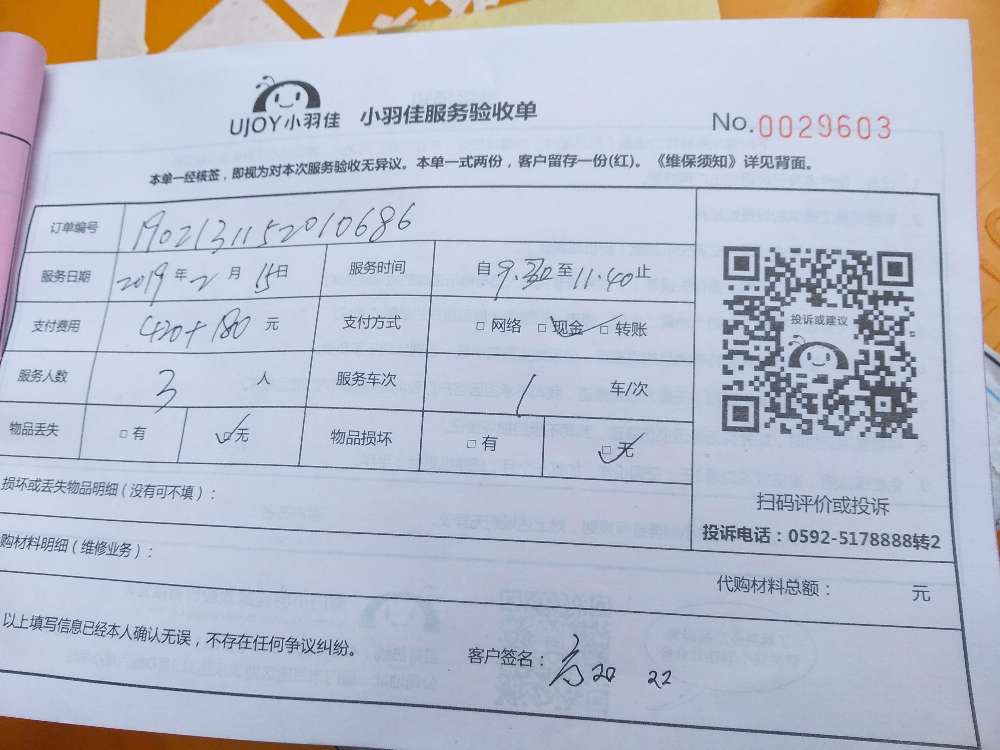 UJOY小羽佳 小羽佳服务验收单 No.0029603
本单一经核签，即视为对本次服务验收无异议。本单一式两份，客户留存一份(红)。《维保须知》详见背面。
订单编号 1902131152010686
服务日期 2019年2月15日 服务时间 自9.30至11.40止
支付费用 420+180元 支付方式 □网络 □现金 □转账
服务人数 3人 服务车次 1车/次
物品丢失 □有 □无 物品损坏 □有 □无
投诉或建议
扫码评价或投诉
投诉电话：0592-5178888转2
损坏或丢失物品明细（没有可不填）：
购材料明细（维修业务）：
代购材料总额： 元
以上填写信息已经本人确认无误，不存在任何争议纠纷。
客户签名：